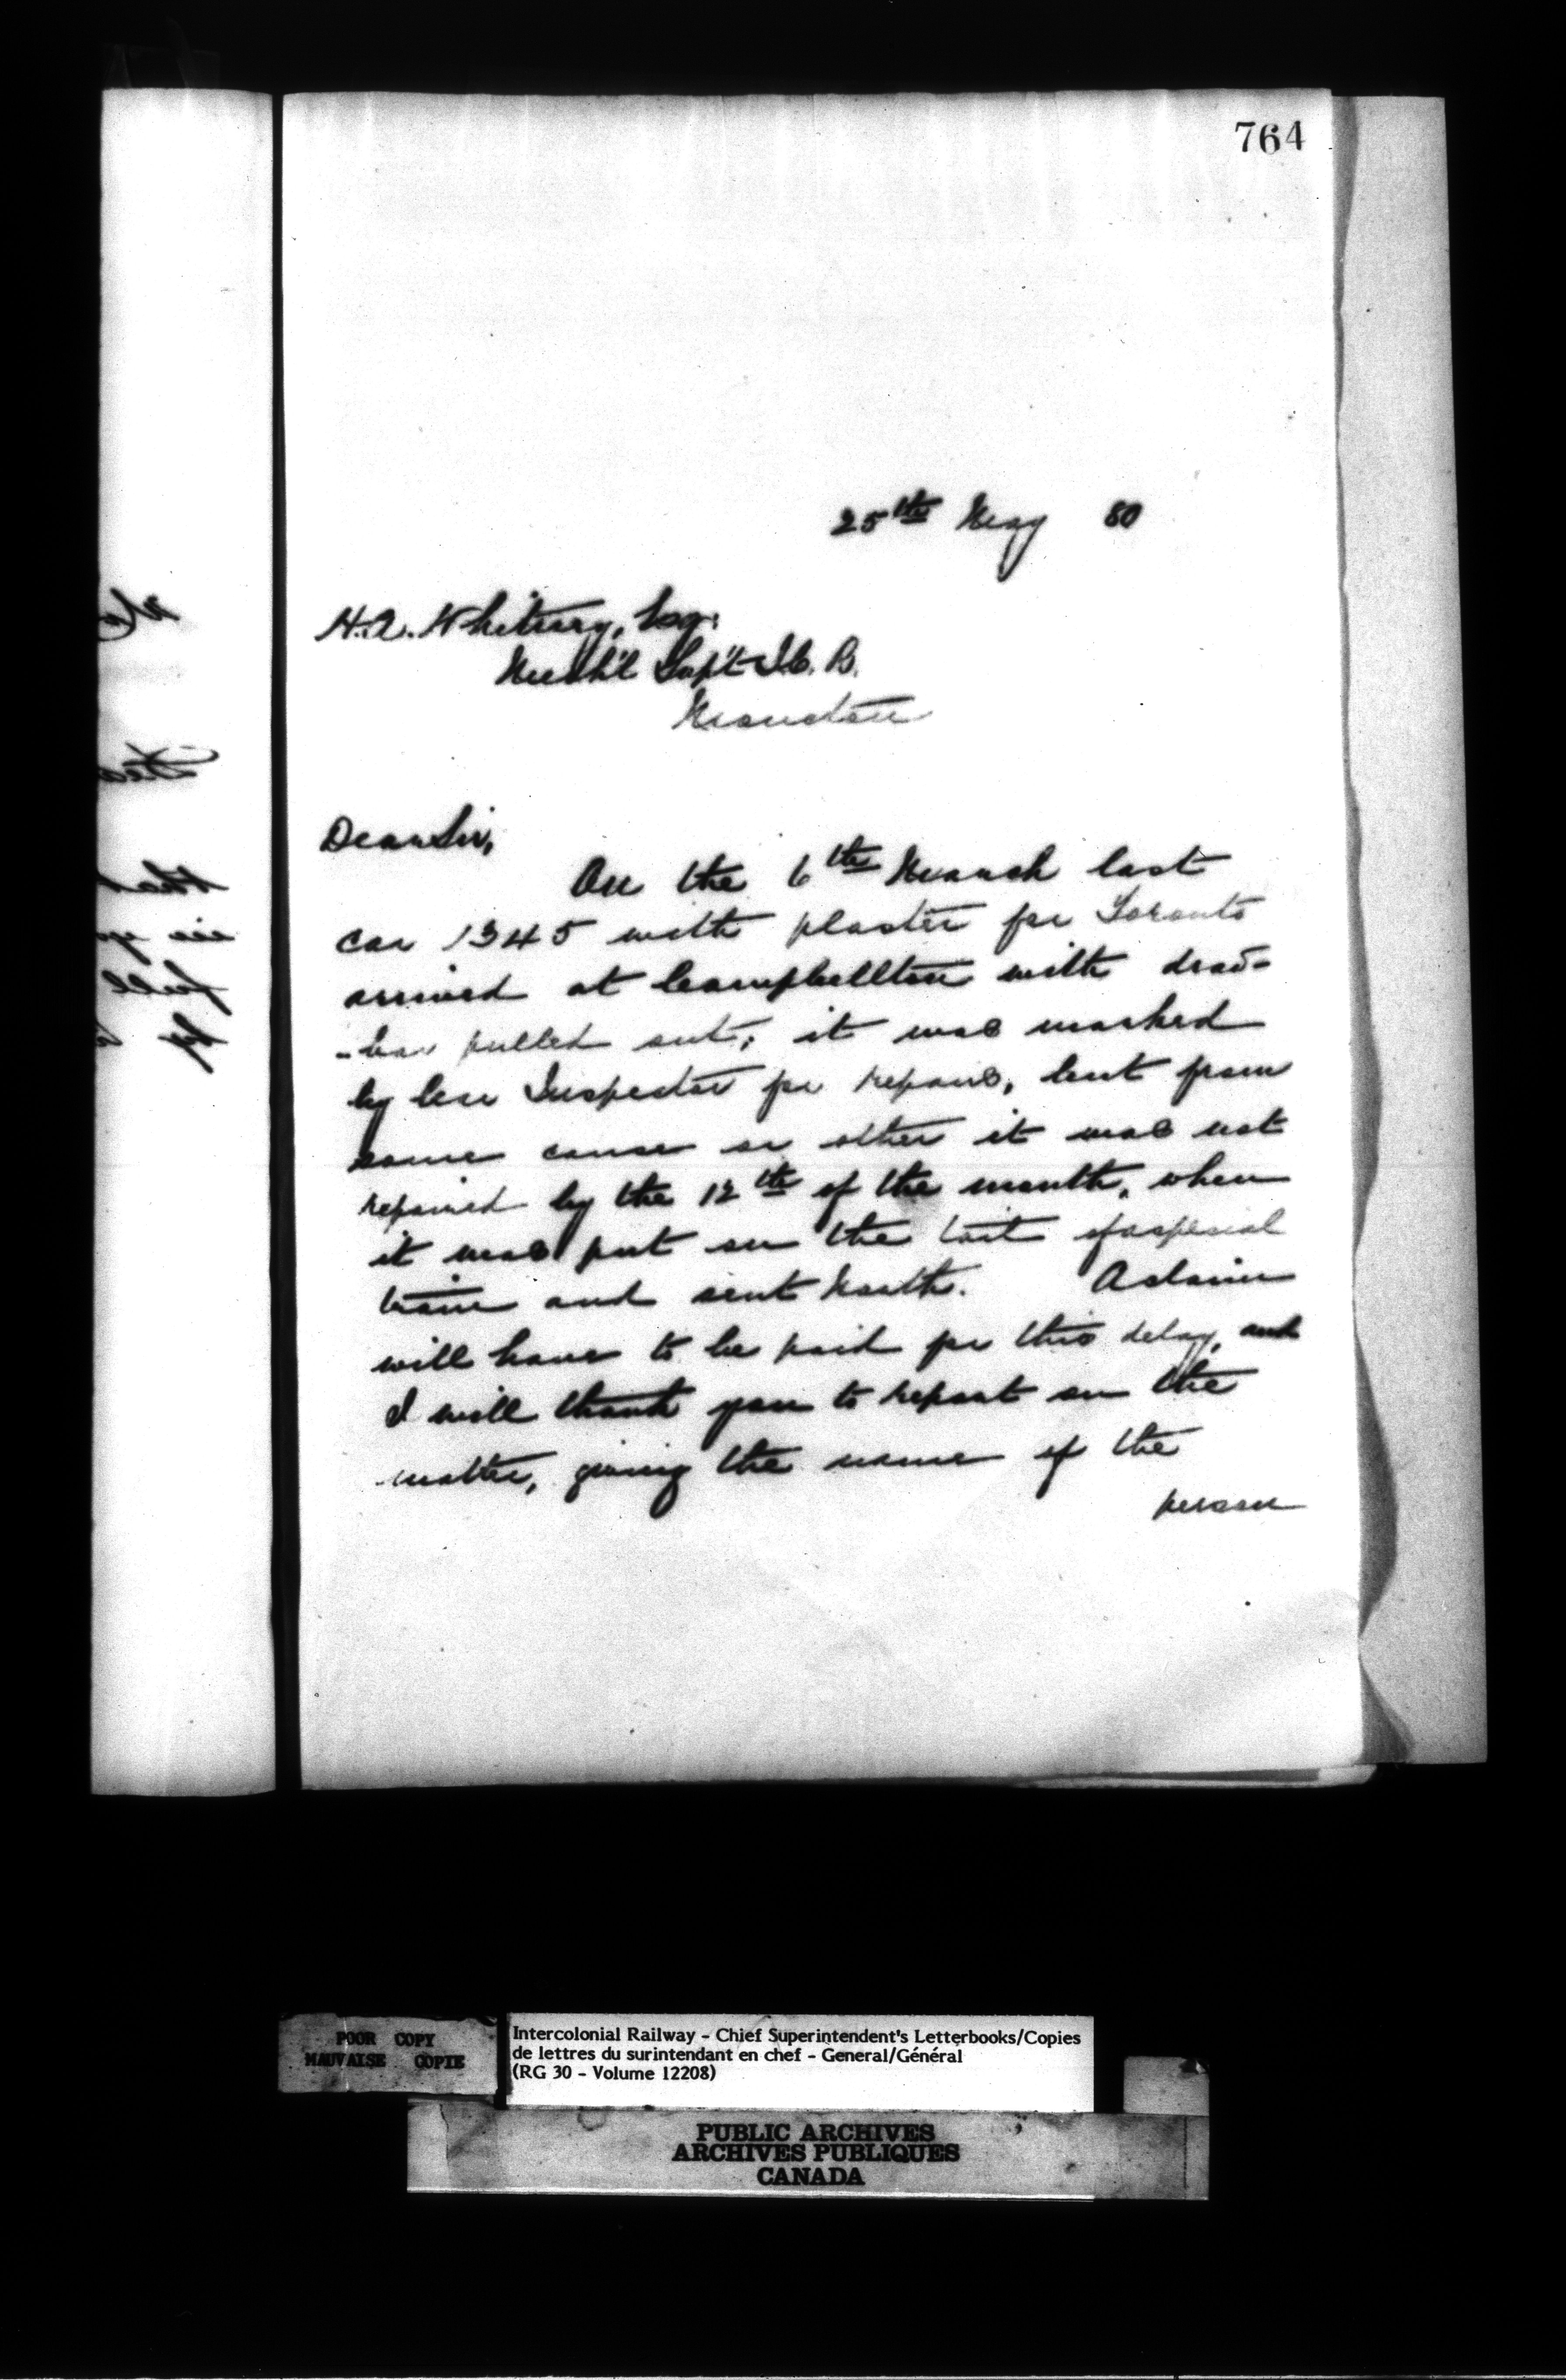 764
25th May 80
H.A. Whitney, Esq.
Mech'l Sup't I.C.R.
Moncton
Dear Sir,
On the 6th March last
car 1345 with plaster for Toronto
arrived at Campbellton with draw-
-bar pulled out; it was marked
by Car Inspector for repairs, but from
some cause or other it was not
repaired by the 12th of the month, when
it was put on the tail of a special
train and sent North. A claim
will have to be paid for this delay, and
I will thank you to report on the
matter, giving the name of the
person
POOR COPY
MAUVAISE COPIE
Intercolonial Railway - Chief Superintendent's Letterbooks/Copies
de lettres du surintendant en chef - General/Général
(RG 30 - Volume 12208)
PUBLIC ARCHIVES
ARCHIVES PUBLIQUES
CANADA